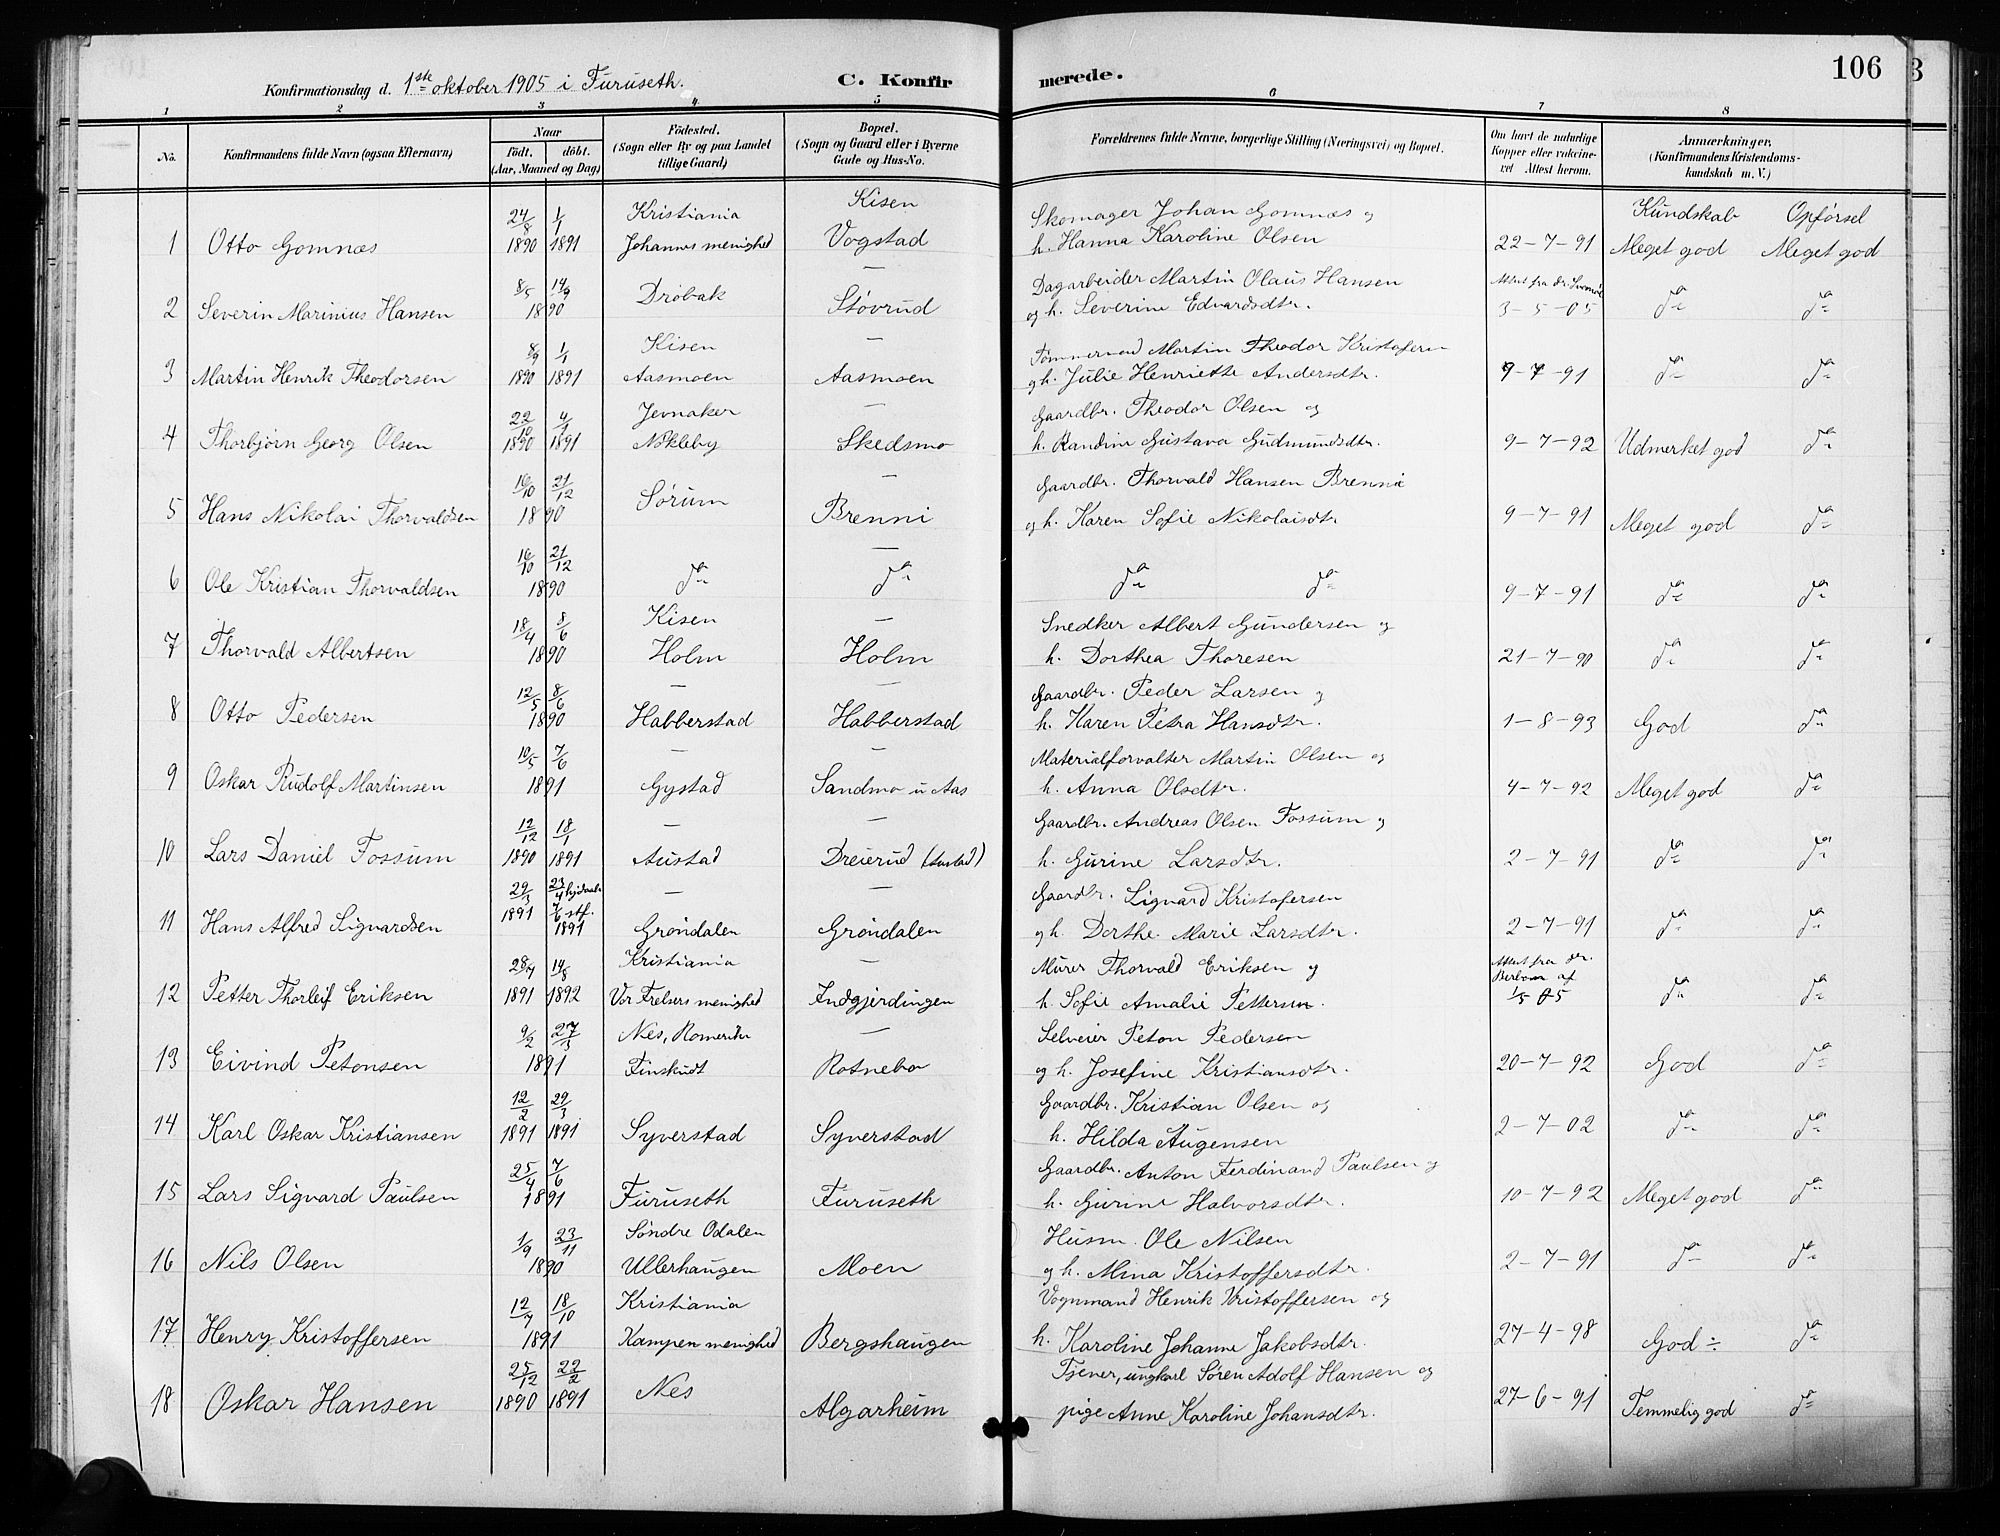 106
Konfirmationsdag d. 1ste oktober 1905 i Furuseth. C. Konfir merede.
1 2 3 4 5 6 7 8
No. Konfirmandens fulde Navn (ogsaa Efternavn) Naar Födested. Bopæl. Forældrenes fulde Navne, borgerlige Stilling (Næringsvei) og Bopæl. Om havt de naturlige Anmærkninger,
födt. döbt. (Sogn eller By og paa Landet (Sogn og Gaard eller i Byerne Kopper eller vakcine- (Konfirmandens Kristendoms-
(Aar, Maaned og Dag) tillige Gaard) Gade og Hus-No. ret Attest herom. kundskab m. V.)
24/8 1/1 Kristiania Kisen Skomager Johan Gomnæs og Kundskab Opførsel
1 Otto Gomnæs 1890 1891 Johannes menighed Vogstad h. Hanna Karoline Olsen 22-7-91 Meget god Meget god
8/5 14/9 Drøbak — Dagarbeider Martin Olaus Hansen Attest fra dr.
2 Severin Marinius Hansen 1890 Støvrud og h. Severine Edvardsdtr. 3-5-05 da da
8/9 1/1 Kisen — Tømmermand Martin Theodor Kristofersn
3 Martin Henrik Theodorsen 1890 1891 Aasmoen Aasmoen og h. Julie Henriette Andersdtr. 9-7-91 da da
22/10 4/1 Jevnaker — Gaardbr. Theodor Olsen og
4 Thorbjørn Georg Olsen 1890 1891 Nøkleby Skedsmo h. Randine Gustava Gudmundsdtr. 9-7-92 Udmerket god da
16/10 21/12 Sørum — Gaardbr. Thorvald Hansen Brenni
5 Hans Nikolai Thorvaldsen 1890 Brenni og h. Karen Sofie Nikolaisdtr 9-7-91 Meget god da
16/10 21/12 —
6 Ole Kristian Thorvaldsen 1890 da da da da 9-7-91 da da
18/4 8/6 Kisen — Snedker Albert Gundersen og
7 Thorvald Albertsen 1890 Holm Holm h. Dorthea Thoresen 21-7-90 da da
12/5 8/6 — — Gaardbr. Peder Larsen og
8 Otto Pedersen 1890 Habberstad Habberstad h. Karen Petra Hansdtr. 1-8-93 God da
10/5 7/6 — — Materialforvalter Martin Olsen og
9 Oskar Rudolf Martinsen 1891 Gystad Sandmo u Aas h. Anna Olsdtr. 4-7-92 Meget god da
12/12 18/1 — — Gaardbr. Andreas Olsen Fossum og
10 Lars Daniel Fossum 1890 1891 Austad Dreierud (Austad) h. Gurine Larsdtr. 2-7-91 da da
29/3 23/4 hjdøbt — — Gaardbr. Sigvard Kristofersen
11 Hans Alfred Sigvardsen 1891 7/6 stf. 1891 Grøndalen Grøndalen og h. Dorthe Marie Larsdtr. 2-7-91 da da
28/7 14/8 Kristiania — Murer Thorvald Eriksen og Attest fra dr.
12 Petter Thorleif Eriksen 1891 1892 Vor Frelsers menighed Indgjerdingen h. Sofie Amalie Pettersen. af 1/5 05 da da
9/2 27/3 Nes, Romerike — Selveier Peton Pedersen
13 Eivind Petonsen 1891 Finskudt Rotnebo og h. Josefine Kristiansdtr. 20-7-92 God da
12/2 29/3 Gaardbr. Kristian Olsen og
14 Karl Oskar Kristiansen 1891 1891 Syverstad Syverstad h. Hilda Augensen 2-7-02 da da
25/4 7/6 Gaardbr. Anton Ferdinand Paulsen og
15 Lars Sigvard Paulsen 1891 Furuseth Furuseth h. Gurine Halvorsdtr. 10-7-92 Meget god da
1/9 23/11 Søndre Odalen Husm. Ole Nilsen
16 Nils Olsen 1890 Ullerhaugen Moen og h. Mina Kristoffersdtr. 2-7-91 da da
12/7 18/10 Kristiania Vognmand Henrik Kristoffersen og
17 Henry Kristoffersen 1891 Kampen menighed Bergshaugen h. Karoline Johanne Jakobsdtr. 27-4-98 God ÷ da
25/12 22/2 Nes Tjener, ungkarl Søren Adolf Hansen og
18 Oskar Hansen 1890 1891 Algarheim pige Anne Karoline Johansdtr. 27-6-91 Temmelig god da